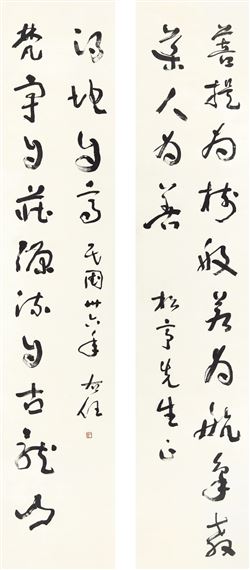 菩提為樹般若為航象教
與人為善
松亭先生正
梵宇自莊源流自古龍山
得地自高
民國卅六年 右任